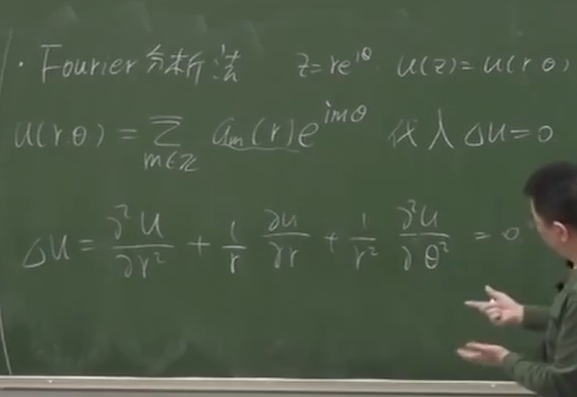 · Fourier分析法 z=re^{iθ} u(z)=u(r θ)
u(r θ) = \sum_{m∈ℤ} a_m(r) e^{imθ} 代入 Δu=0
Δu = \frac{∂²u}{∂r²} + \frac{1}{r} \frac{∂u}{∂r} + \frac{1}{r²} \frac{∂²u}{∂θ²} = 0